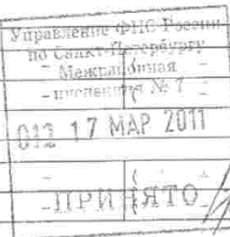 Управление ФНС России
по Санкт-Петербургу
Межрайонная
инспекция № 7
012 17 МАР 2011
ПРИНЯТО